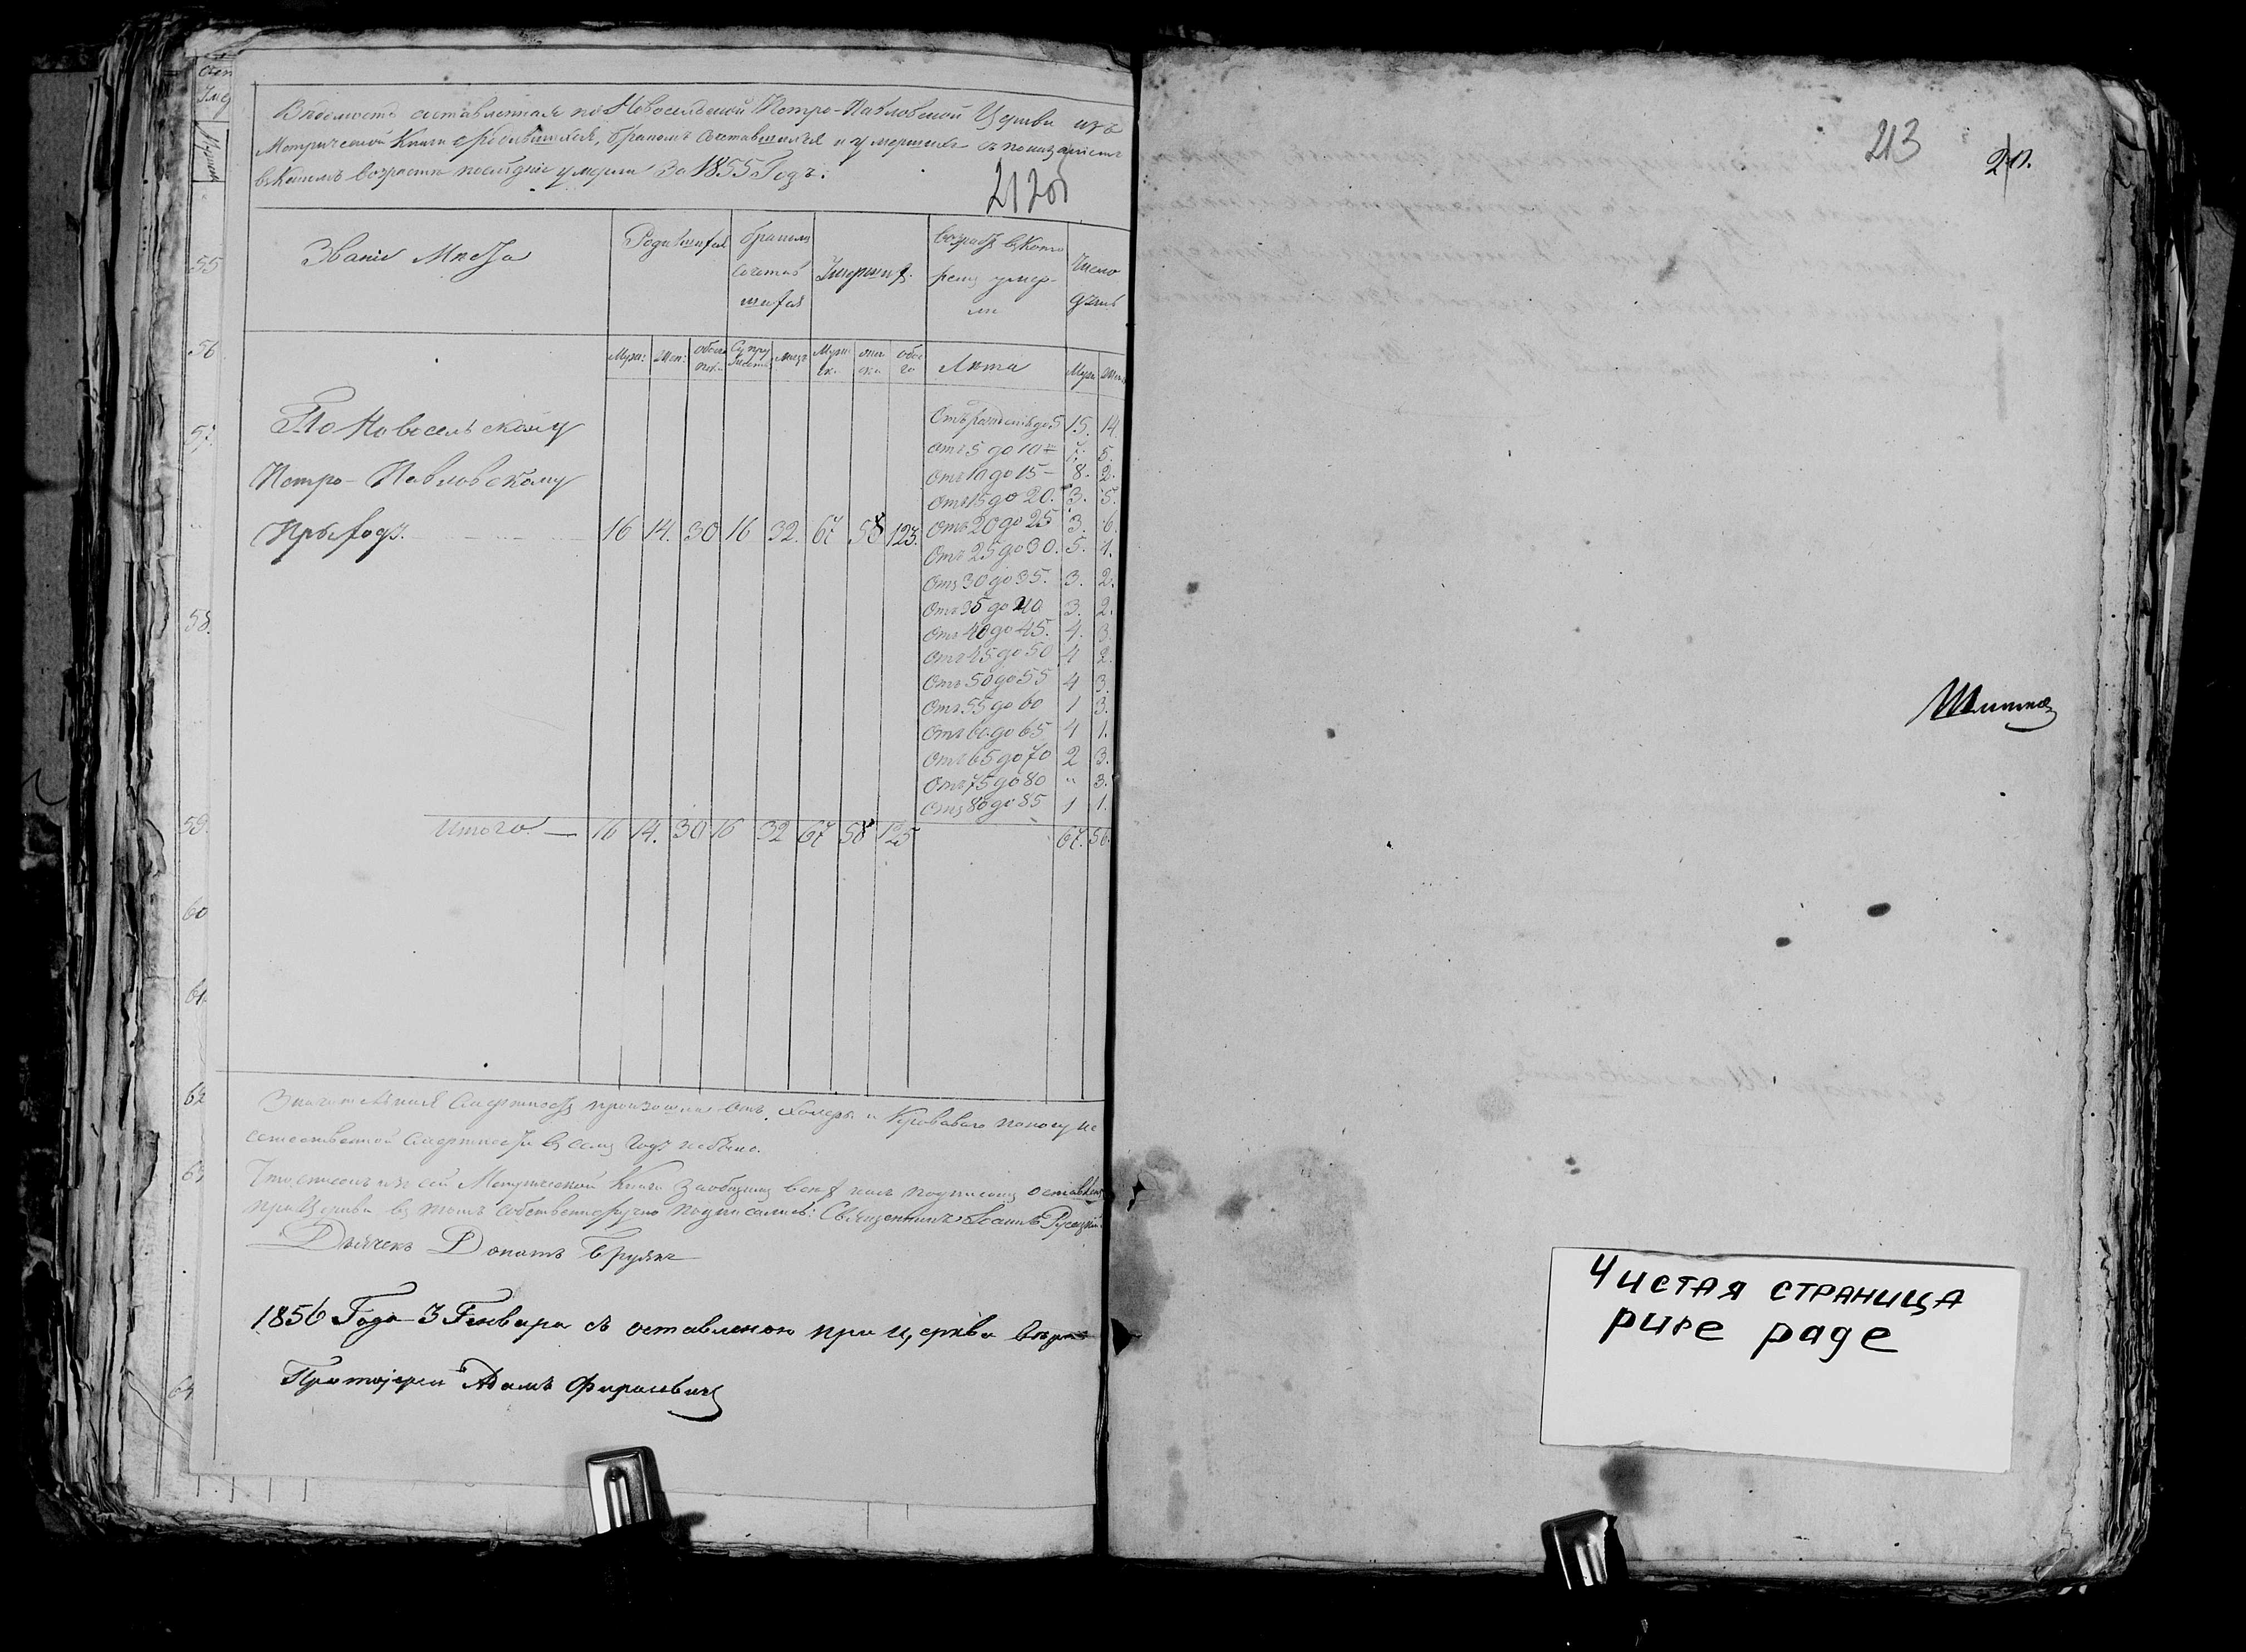 Вѣдомость составленная по Новосельской Петро-Павловской Церкви изъ
Метрической Книги о родившихся, бракомъ сочетавшихся и умершихъ съ показаніемъ
въ какомъ возрастѣ послѣдніе умерли за 1855 Годъ.
Званіе Мѣста
Родившихся
бракомъ
сочетав
шихся
Умершихъ.
возрастъ въ кото
ромъ умер-
ли
Число
душъ
Муж: Жен: обоего Супру Лицъ Муж: обое Лѣта Муж Жен
По Новосельскому
Петро-Павловскому
Приходу. 16 14. 30 16 32. 67 58 123.
Отъ рожденія до 5 15. 14.
Отъ 5 до 10 7. 5.
Отъ 10 до 15 – 8. 2.
Отъ 15 до 20. 3. 5.
Отъ 20 до 25 3. 6.
Отъ 25 до 30. 5. 1.
Отъ 30 до 35. 3. 2.
Отъ 35 до 40 3. 2.
Отъ 40 до 45. 4. 3.
Отъ 45 до 50 4 2.
Отъ 50 до 55 4 3.
Отъ 55 до 60 1 3.
Отъ 60 до 65 4 1.
Отъ 65 до 70 2 3.
Отъ 75 до 80 " 3.
Отъ 80 до 85 1 1.
Итого — 16 14. 30 16 32 67 58 125 67. 56.
Значительная смертность произошла отъ холеры и Кроваваго поносу не
естественной смертности въ семъ году небыло.
Что списокъ сей Метрической Книги за общимъ всѣхъ насъ подписомъ оставленъ
при Церкви въ томъ собственноручно подписались: Священникъ Іоаннъ Русецкій
Дьячекъ Донатъ
1856 Года 3 Генваря съ оставленою при церкви вѣрно
Протоіерей Адамъ
213
55
56
57.
58.
59.
60
61.
62
63
64.
Чистая страница
pure page